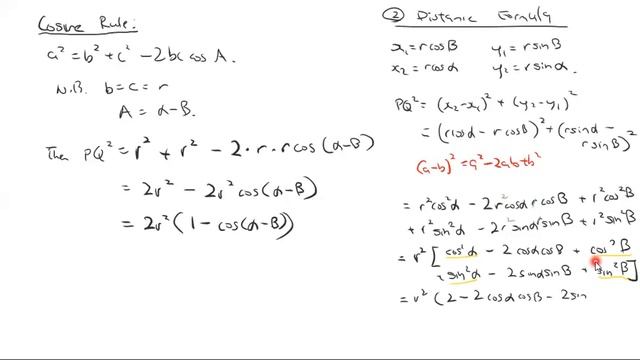 Cosine Rule:
a² = b² + c² - 2bc cos A.
N.B. b = c = r
A = α - β.
Then PQ² = r² + r² - 2·r·r cos(α-β)
= 2r² - 2r² cos(α-β)
= 2r² (1 - cos(α-β))
② Distance Formula
x₁ = rcosβ y₁ = rsinβ
x₂ = rcosα y₂ = rsinα.
PQ² = (x₂-x₁)² + (y₂-y₁)²
= (rcosα - rcosβ)² + (rsinα - rsinβ)²
(a-b)² = a² - 2ab + b²
= r²cos²α - 2rcosα rcosβ + r²cos²β
+ r²sin²α - 2rsinα rsinβ + r²sin²β
= r² [ cos²α - 2cosαcosβ + cos²β
+ sin²α - 2sinαsinβ + sin²β ]
= r² ( 2 - 2cosαcosβ - 2sin